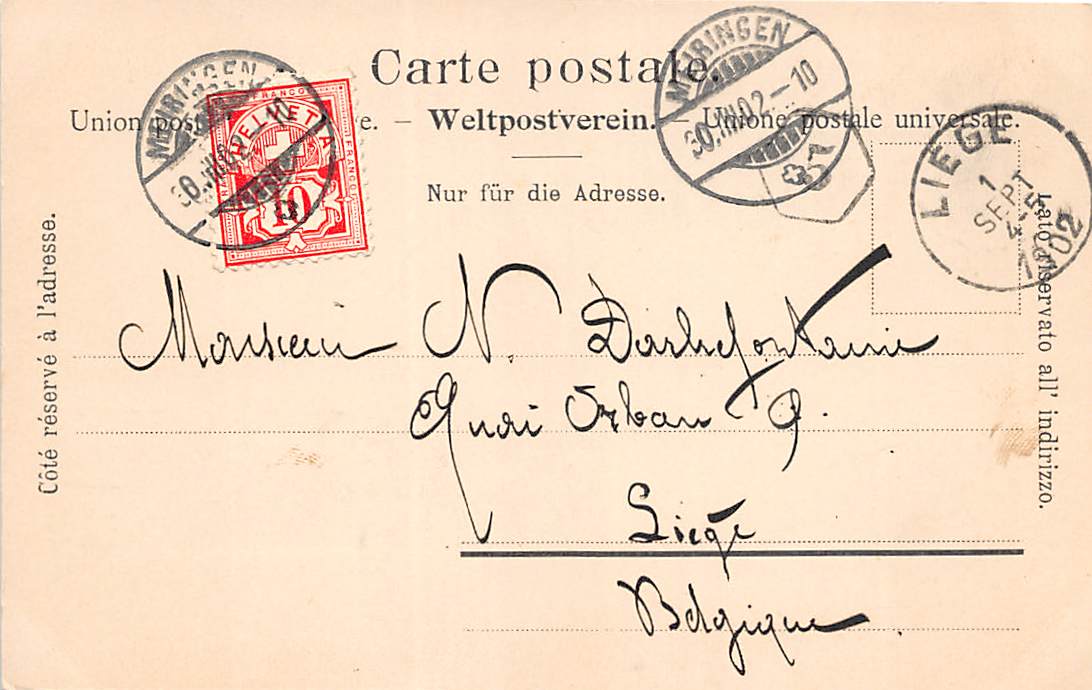 Carte postale.
Union postale universelle. – Weltpostverein. – Unione postale universale.
Nur für die Adresse.
Côté réservé à l'adresse.
Lato riservato all' indirizzo.
MEIRINGEN
30.VIII.02–10
FRANCO
HELVETIA
FRANCO
10
MEIRINGEN
30.VIII.02–10
57
LIÉGE
1
SEPT
4-5
1902
Monsieur N. Darchefontaine
Quai Orban 9.
Liége
Belgique.